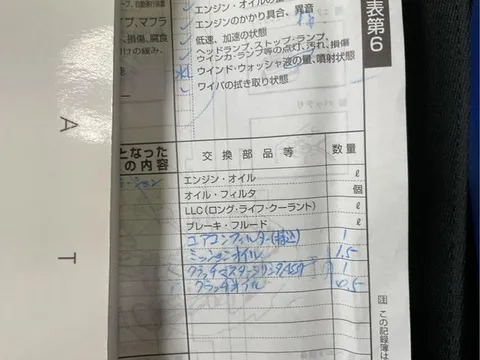 エンジン・オイルの
エンジンのかかり具合、異音
低速、加速の状態
ヘッドランプ、ストップ・ランプ、
ウインカ・ランプ等の点灯、汚れ、損傷
ウインド・ウォッシャ液の量、噴射状態
ワイパの拭き取り状態
プ、マフラ
、損傷、腐食
付けの緩み、
表第6
A
T
となった
の内容
交換部品等
数量
エンジン・オイル
ℓ
オイル・フィルタ
個
LLC(ロング・ライフ・クーラント)
ℓ
ブレーキ・フルード
ℓ
エアコンフィルター(持込)
1
ミッションオイル
1.5
クラッチマスターシリンダASSY
1
クラッチオイル
0.5
注 この記録簿は